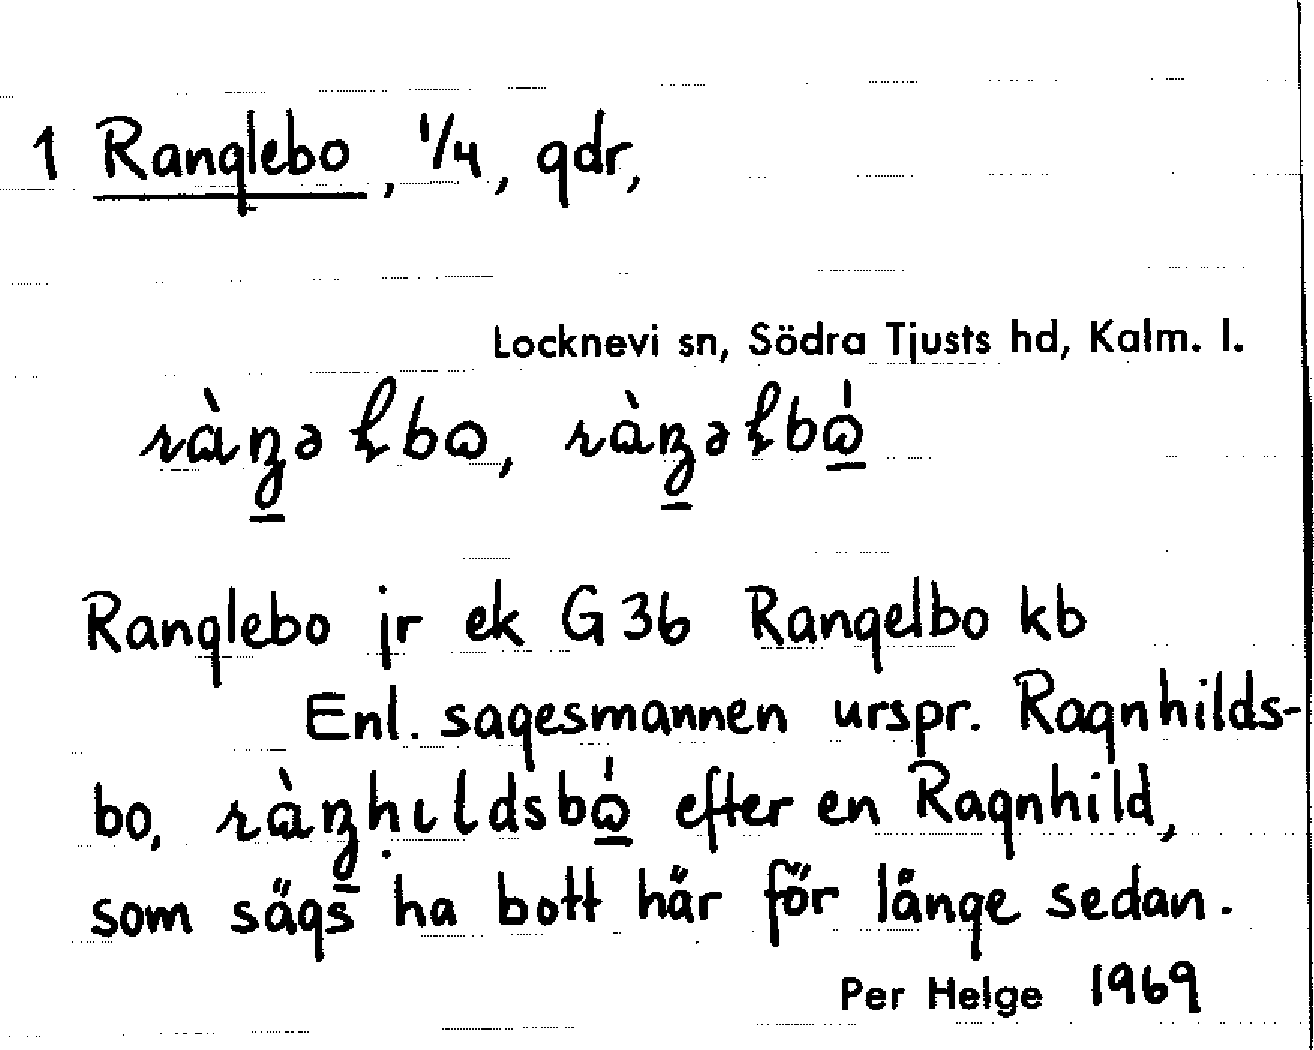 1 Ranglebo, 1/4, gdr,
Locknevi sn, Södra Tjusts hd, Kalm. l.
Ranglebo jr ek G 36 Rangelbo kb
Enl. sagesmannen urspr. Ragnhilds-
bo, efter en Ragnhild,
som sägs ha bott här för länge sedan.
Per Helge 1969